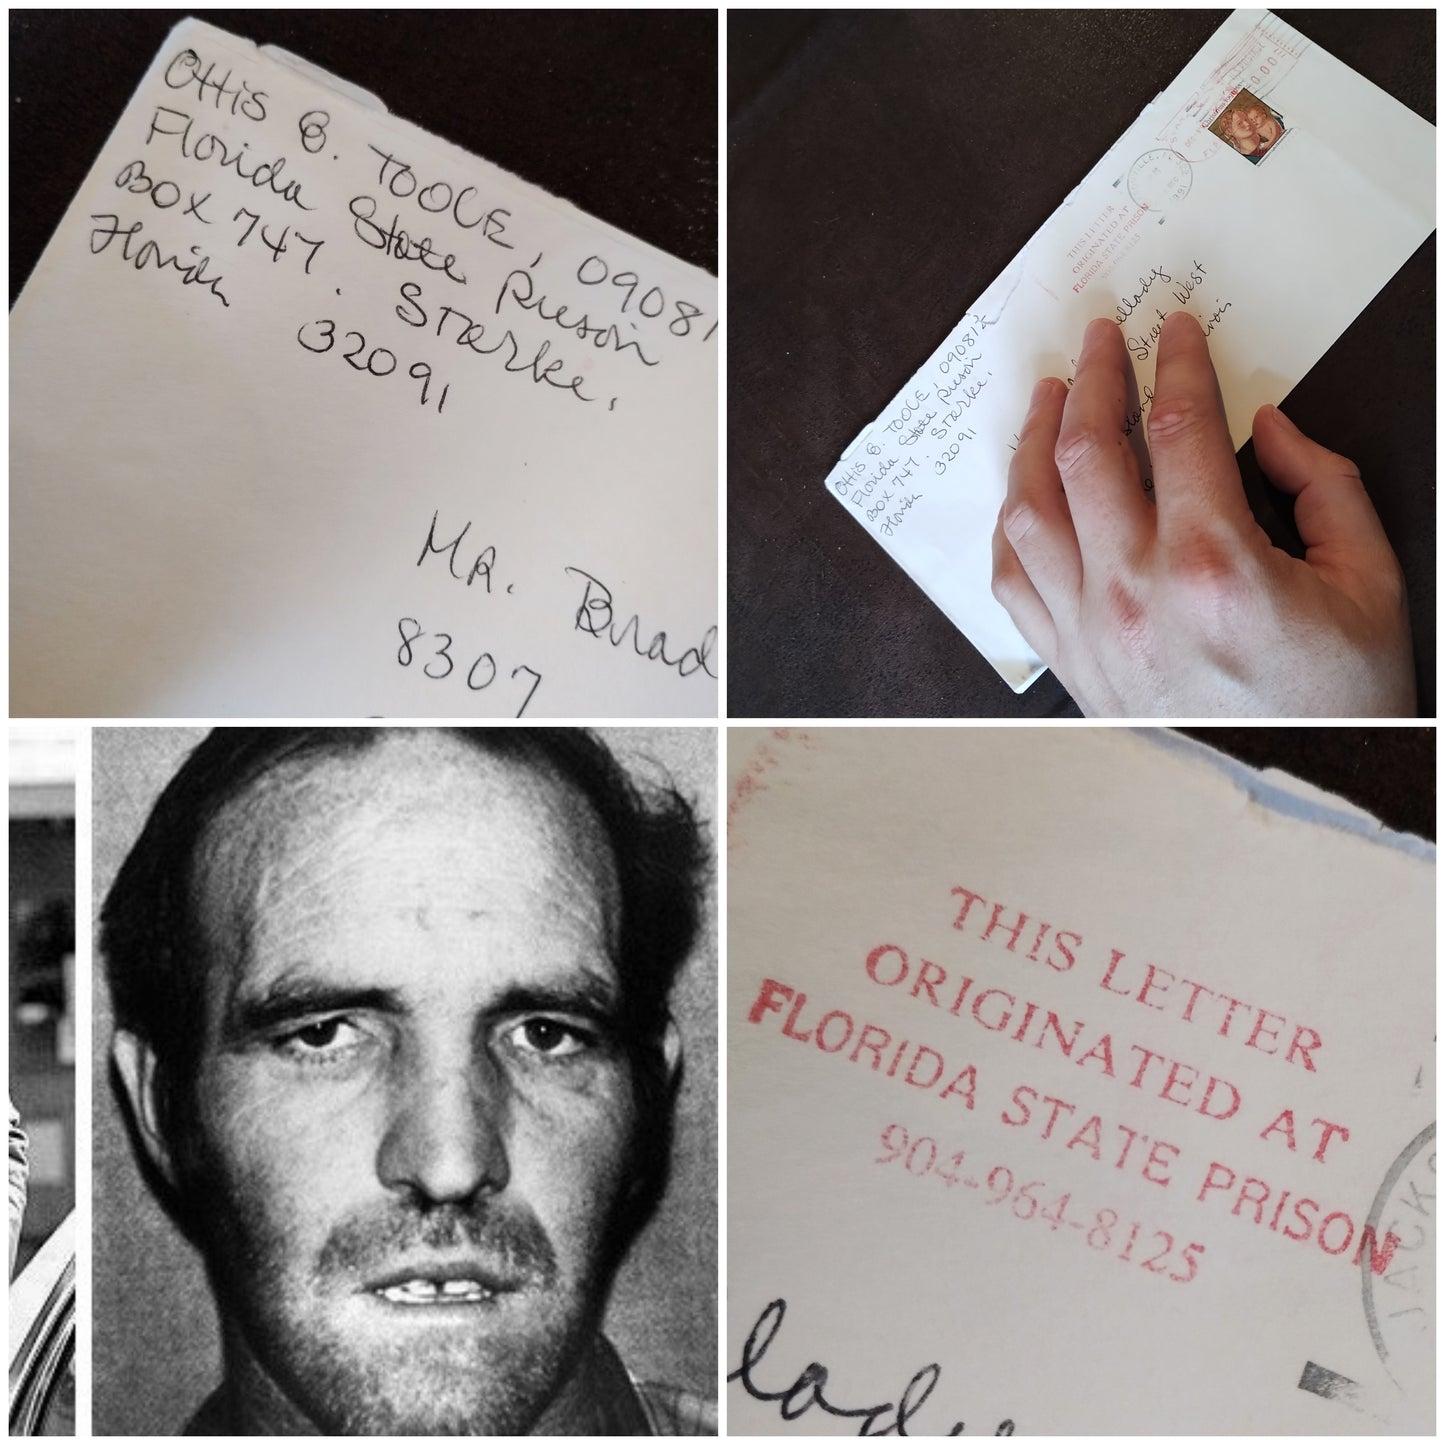 Ottis B. TOOLE, 09081
Florida State Prison
BOX 747. Starke,
Florida 32091
Mr. Brad
8307
THIS LETTER
ORIGINATED AT
FLORIDA STATE PRISON
Street West
Ottis B. TOOLE, 090812
Florida State Prison
BOX 747. Starke,
Florida 32091
THIS LETTER
ORIGINATED AT
FLORIDA STATE PRISON
904-964-8125
JACKS